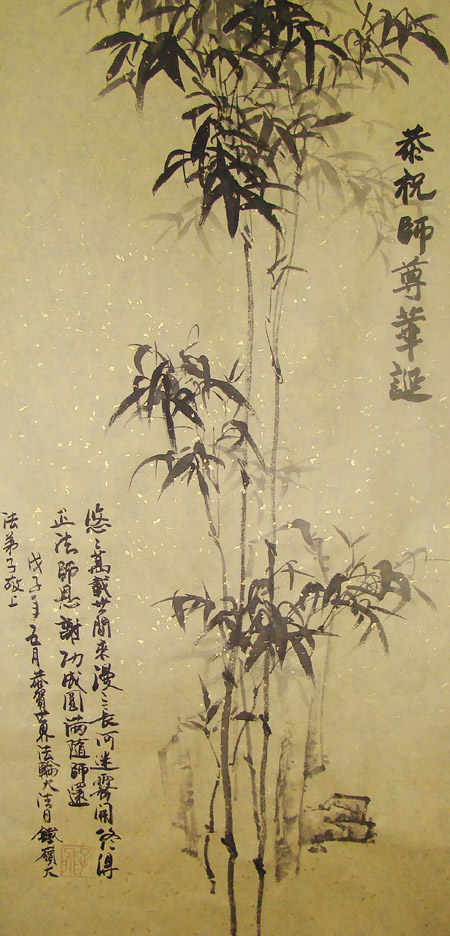 恭祝師尊華誕
悠々萬載世間來漫々長河迷霧開終得
正法師恩謝功成圓滿隨師還
戊子年五月恭賀世界法輪大法日鐵嶺大
法弟子敬上